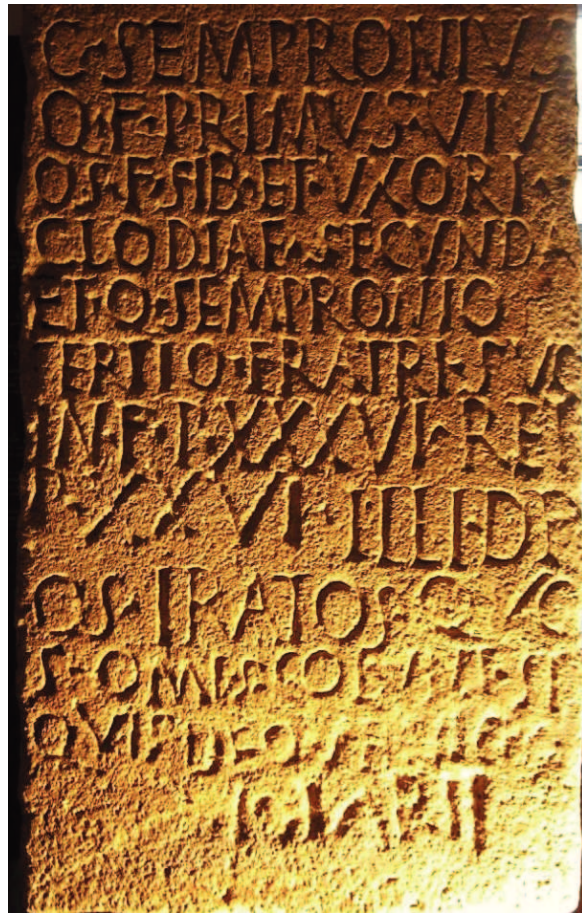 C·SEMPRONIVS
Q·F·PRIMVS·VIV
OS·F·SIB·ET·VXORI·
CLODIAE·SECVNDA
ET·Q·SEMPRONIO
TERTIO·FRATRI·SVO
IN·F·P·XXXVI·RET
P·XXVI·ILLI·DE
OS·IRATOS·QVO
S·OMIS·COLVNT·SI
QVIS·DE·